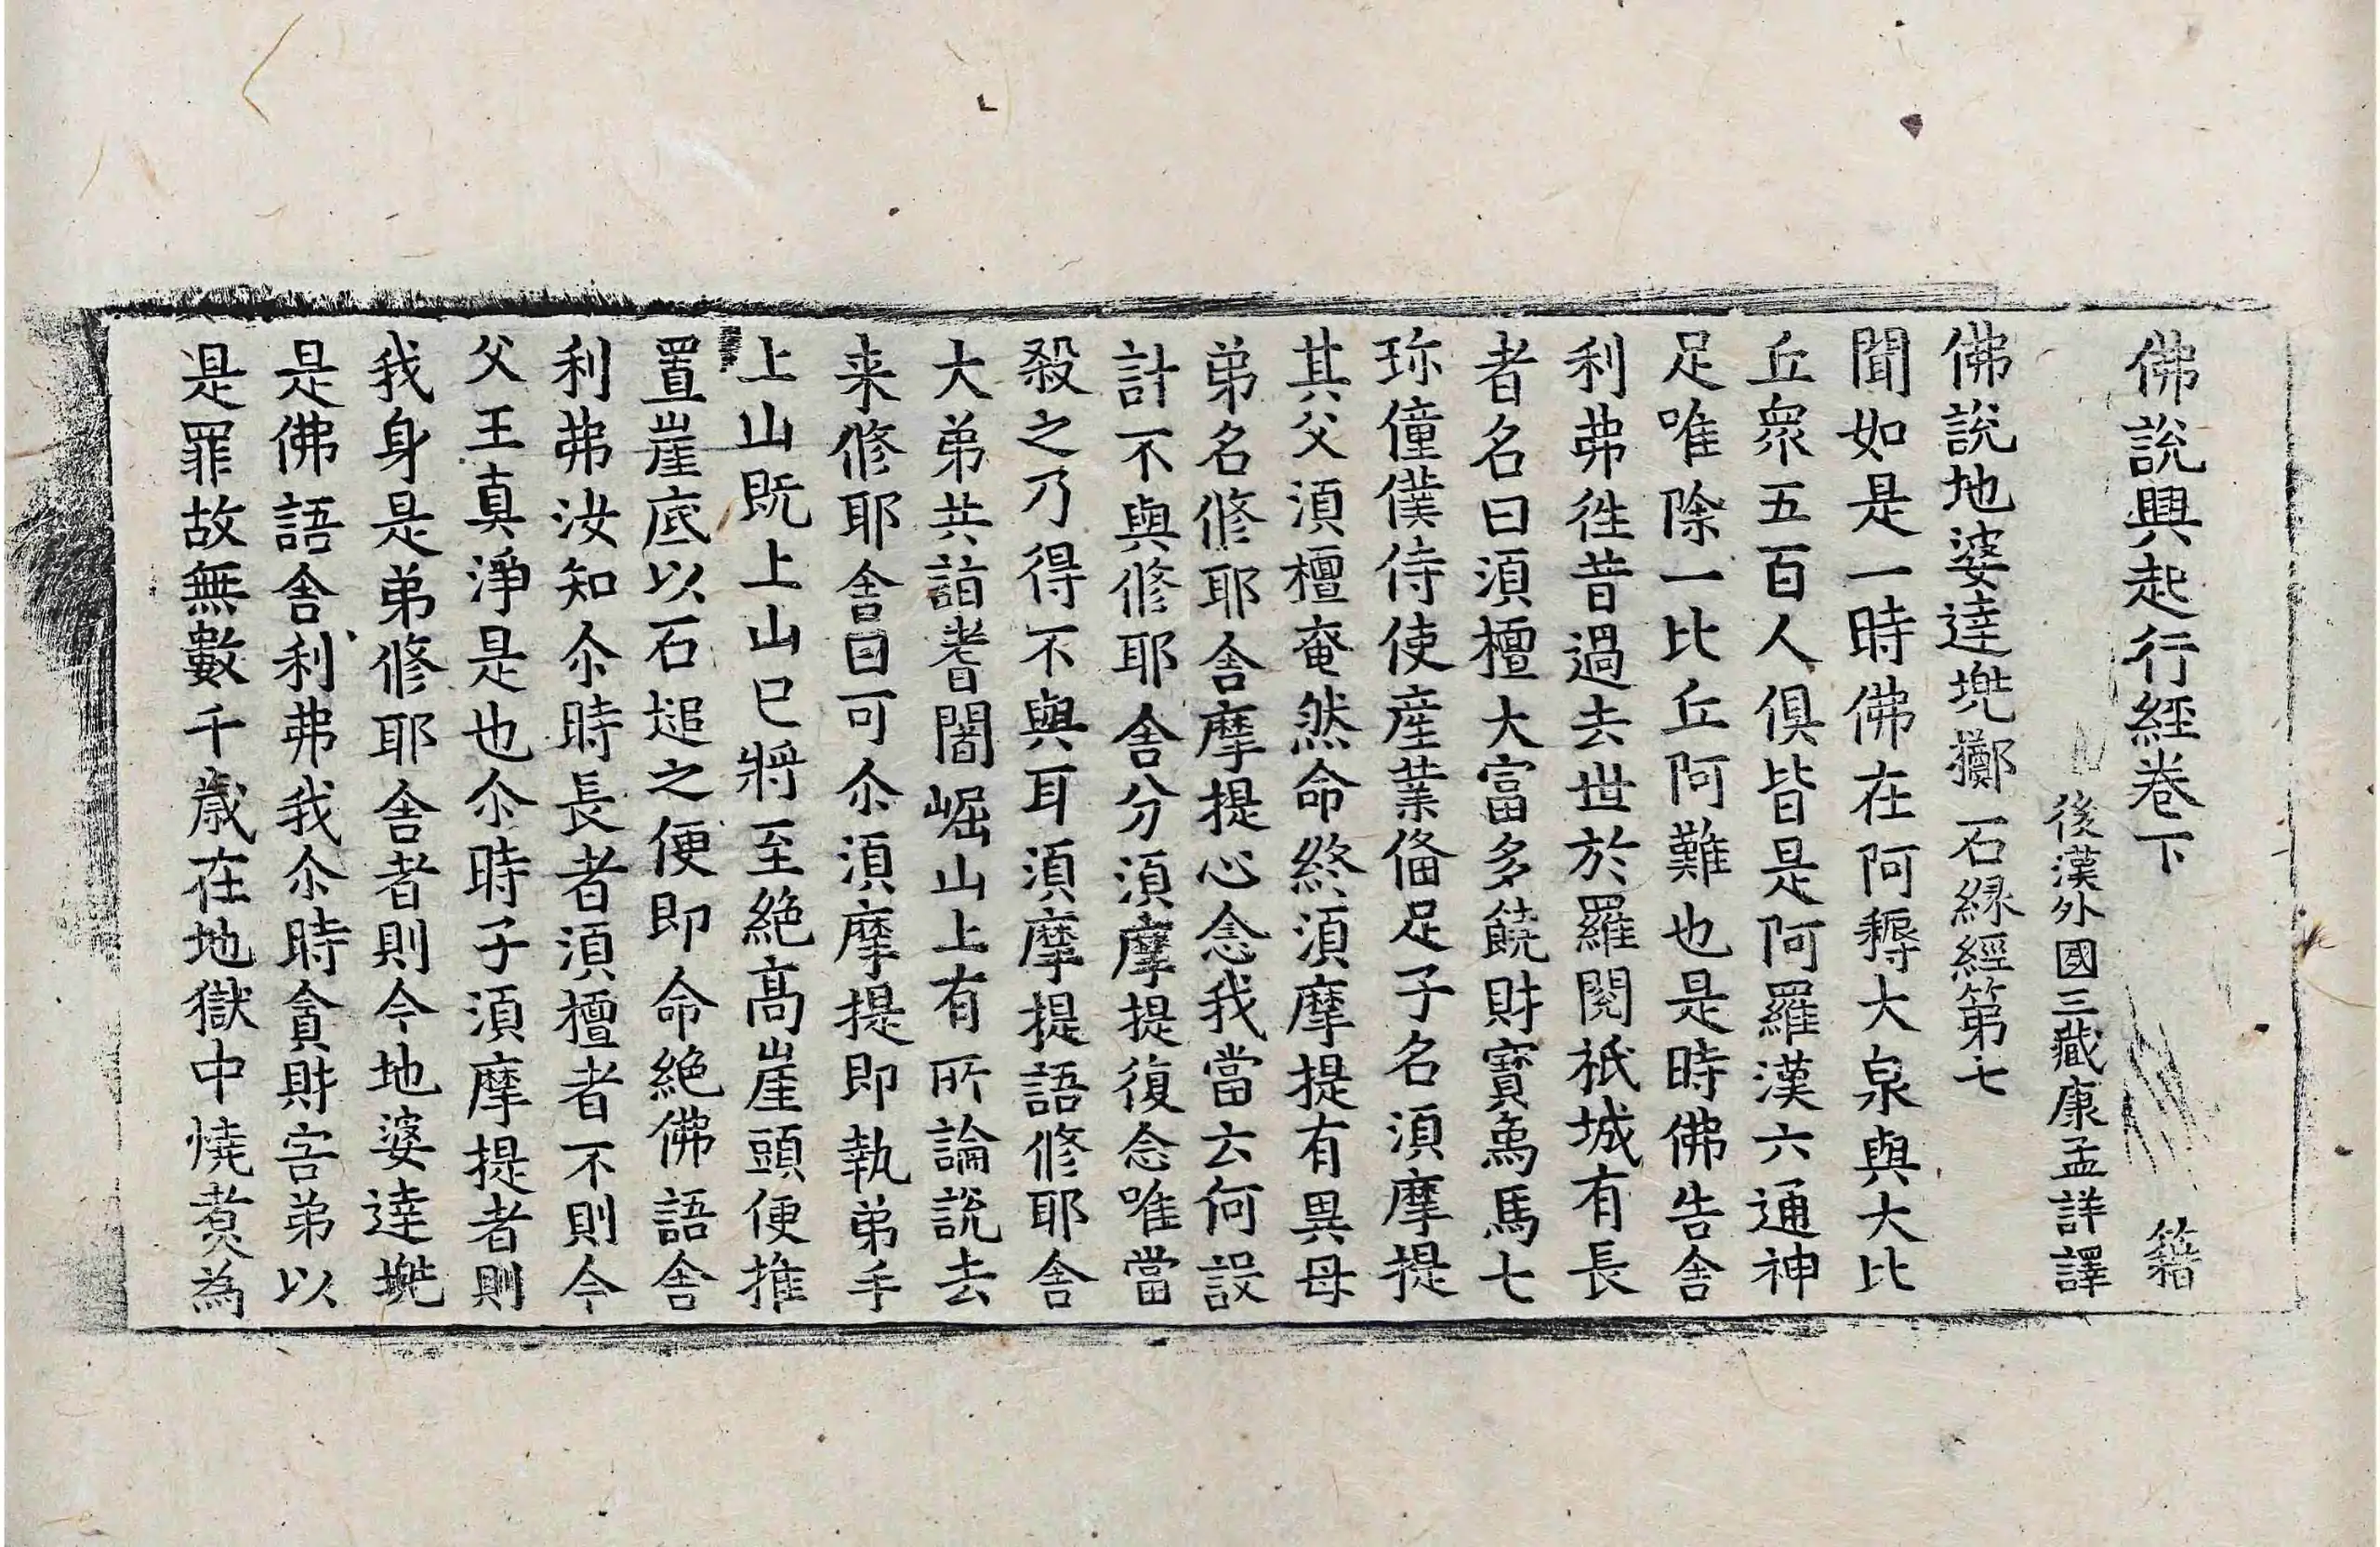 佛說興起行經卷下 籍
後漢外國三藏康孟詳譯
佛說地婆達兠擲石緣經第七
聞如是一時佛在阿耨大泉與大比
丘衆五百人俱皆是阿羅漢六通神
足唯除一比丘阿難也是時佛告舍
利弗徃昔過去世於羅閱祇城有長
者名曰須檀大富多饒財寶象馬七
珎僮僕侍使産業俻足子名須摩提
其父須檀奄然命終須摩提有異母
弟名修耶舍摩提心念我當云何設
計不與修耶舍分須摩提復念唯當
殺之乃得不與耳須摩提語修耶舍
大弟共詣耆闍崛山上有所論說去
来修耶舍曰可尒須摩提即執弟手
上山旣上山已將至絶高崖頭便推
置崖底以石塠之便即命絶佛語舍
利弗汝知尒時長者須檀者不則今
父王真淨是也尒時子須摩提者則
我身是弟修耶舍者則今地婆達兠
是佛語舍利弗我尒時貪財害弟以
是罪故無數千歳在地獄中燒煑為